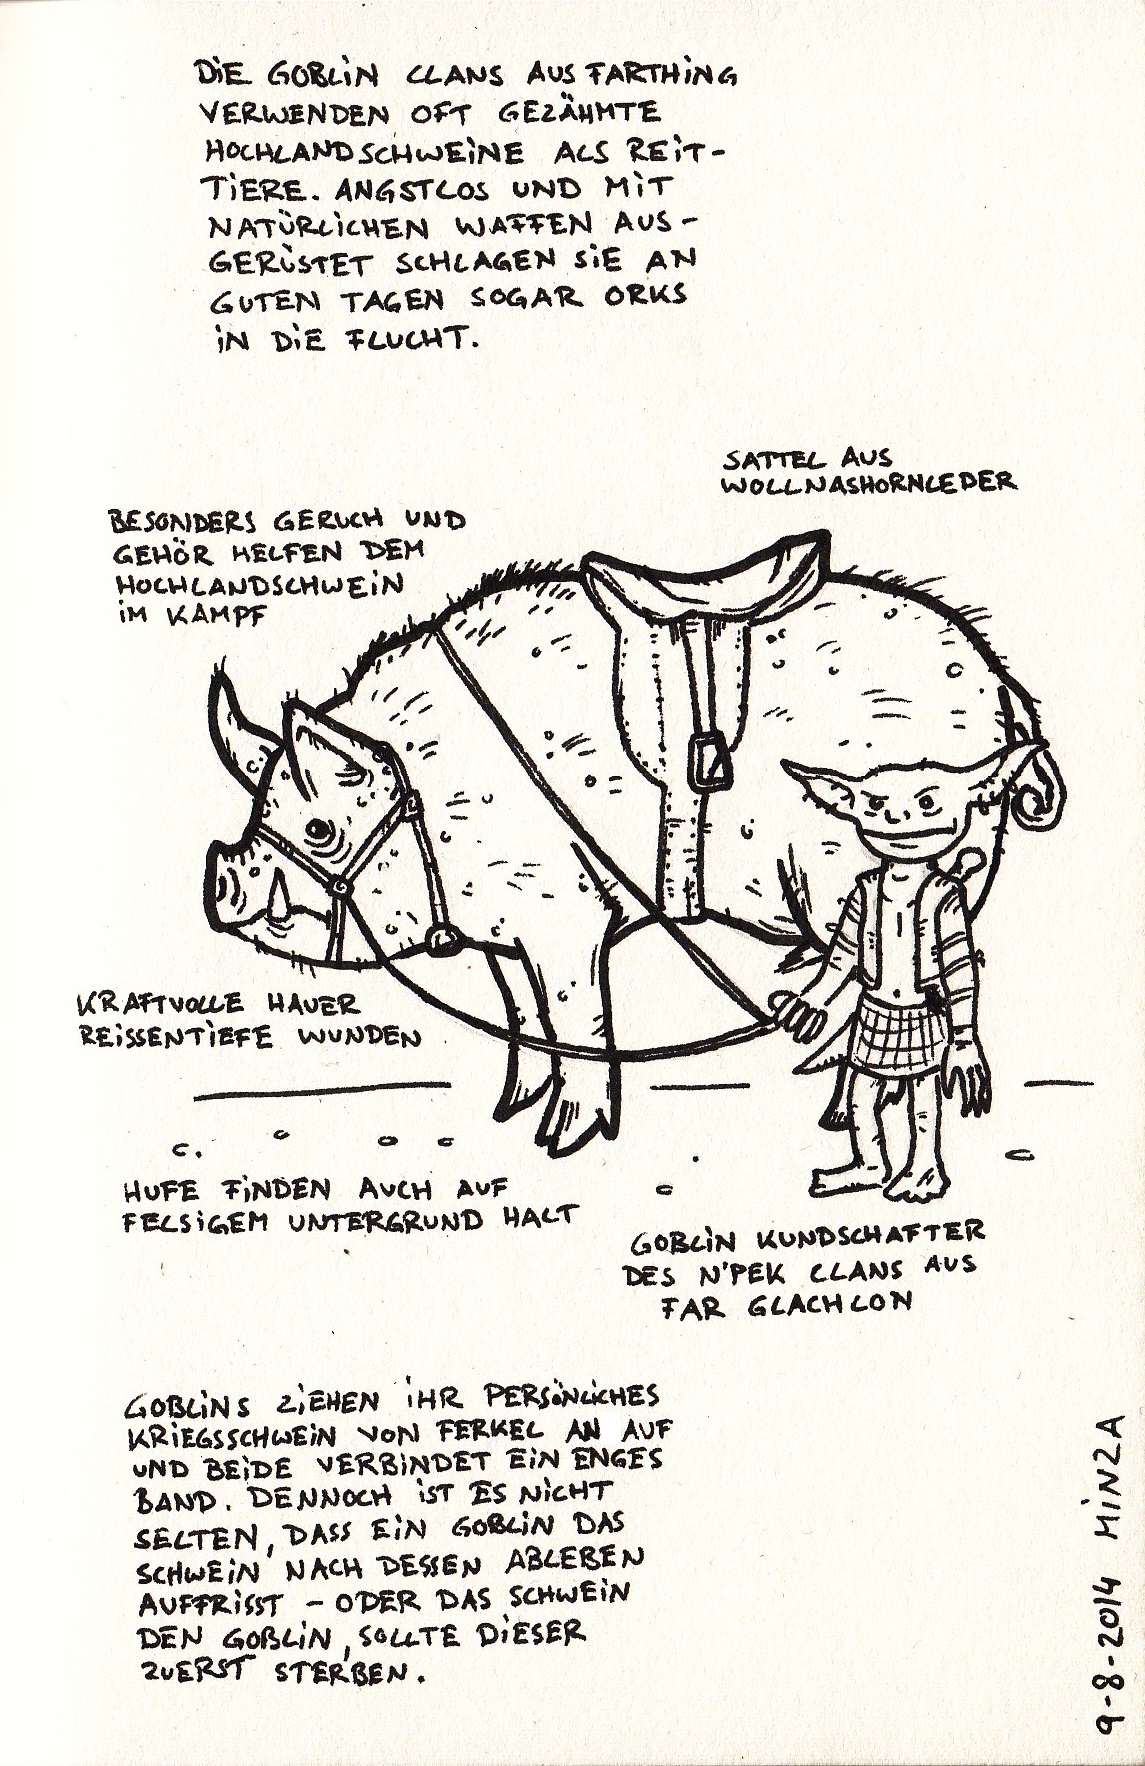 DiE GOBLiN CLANS AUS FARTHiNG
VERWENDEN OFT GEZÄHMTE
HOCHLANDSCHWEiNE ALS REiT-
TiERE. ANGSTLOS UND MiT
NATÜRLiCHEN WAFFEN AUS-
GERÜSTET SCHLAGEN SiE AN
GUTEN TAGEN SOGAR ORKS
iN DiE FLUCHT.
SATTEL AUS
WOLLNASHORNLEDER
BESONDERS GERUCH UND
GEHÖR HELFEN DEM
HOCHLANDSCHWEiN
iM KAMPF
KRAFTVOLLE HAUER
REiSSEN TiEFE WUNDEN
HUFE FiNDEN AUCH AUF
FELSiGEM UNTERGRUND HALT
GOBLiN KUNDSCHAFTER
DES N'PEK CLANS AUS
FAR GLACHLON
GOBLiNS ZiEHEN iHR PERSÖNLiCHES
KRiEGSSCHWEiN VON FERKEL AN AUF
UND BEiDE VERBiNDET EiN ENGES
BAND. DENNOCH iST ES NiCHT
SELTEN, DASS EiN GOBLiN DAS
SCHWEiN NACH DESSEN ABLEBEN
AUFFRiSST - ODER DAS SCHWEiN
DEN GOBLiN, SOLLTE DiESER
ZUERST STERBEN.
9-8-2014 MiNZA